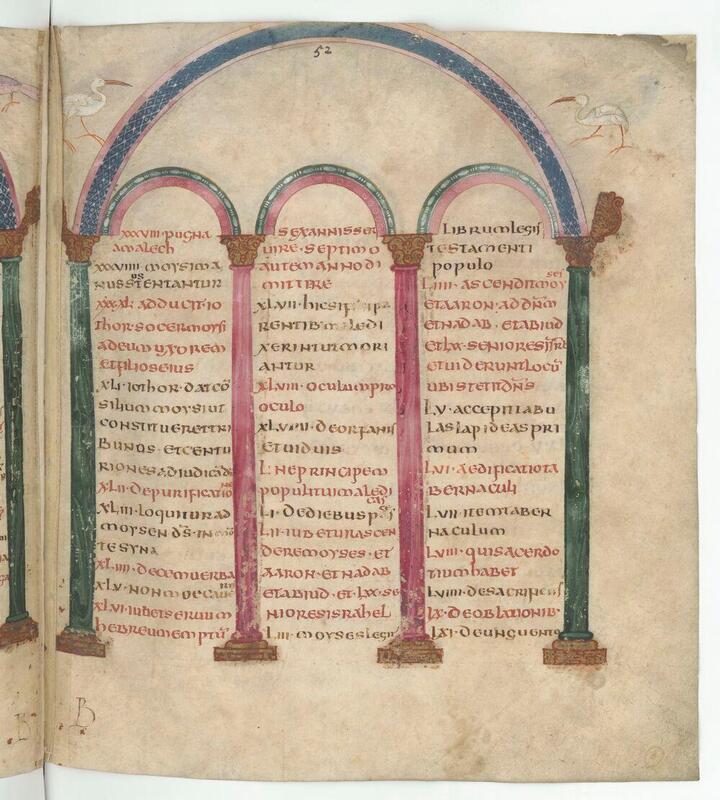 52
xxxviii · pugna
amalech
xxxviiii · moysi ma
nus sustentantur
xxxx · adducit io
thor socer moysi
ad eum uxorem
et filios eius
xli · iothor dat cō
silium moysi ut
constitueret tri
bunos · et centu
riones ad iudicādū
xlii · de purificatione
xliii · loquitur ad
moysen d̄s · in
te syna
xliiii · decem uerba
xlv · non moechaueris
xlvi · iubet seruum
hebreum emptū
sex annis ser
uire · septimo
autem anno di
mittere
xlvii · hic si
rentib maledi
xerint ut mori
antur
xlviii · oculum pro
oculo
xlviiii · de orfanis
et uiduis
l · ne principem
populi tui maledicas
li · de diebus
lii · iubetur ascen
dere moyses · et
aaron · et nadab
et abiud · et lxx · se
niores israhel
liii · moyses legit
librum legis
testamenti
populo
liiii · ascendit moyses
et aaron · ad dn̄m
et nadab · et abiud
et lxx · seniores isrl
et uiderunt locū
ubi stetit dn̄s
lv · accepit tabu
las lapideas pri
mum
lvi · aedificatio ta
bernaculi
lvii · item taber
naculum
lviii · quis acerdo
tium habet
lviiii · de sacrificiis
lx · de oblationib·
lxi · de unguento
B
B